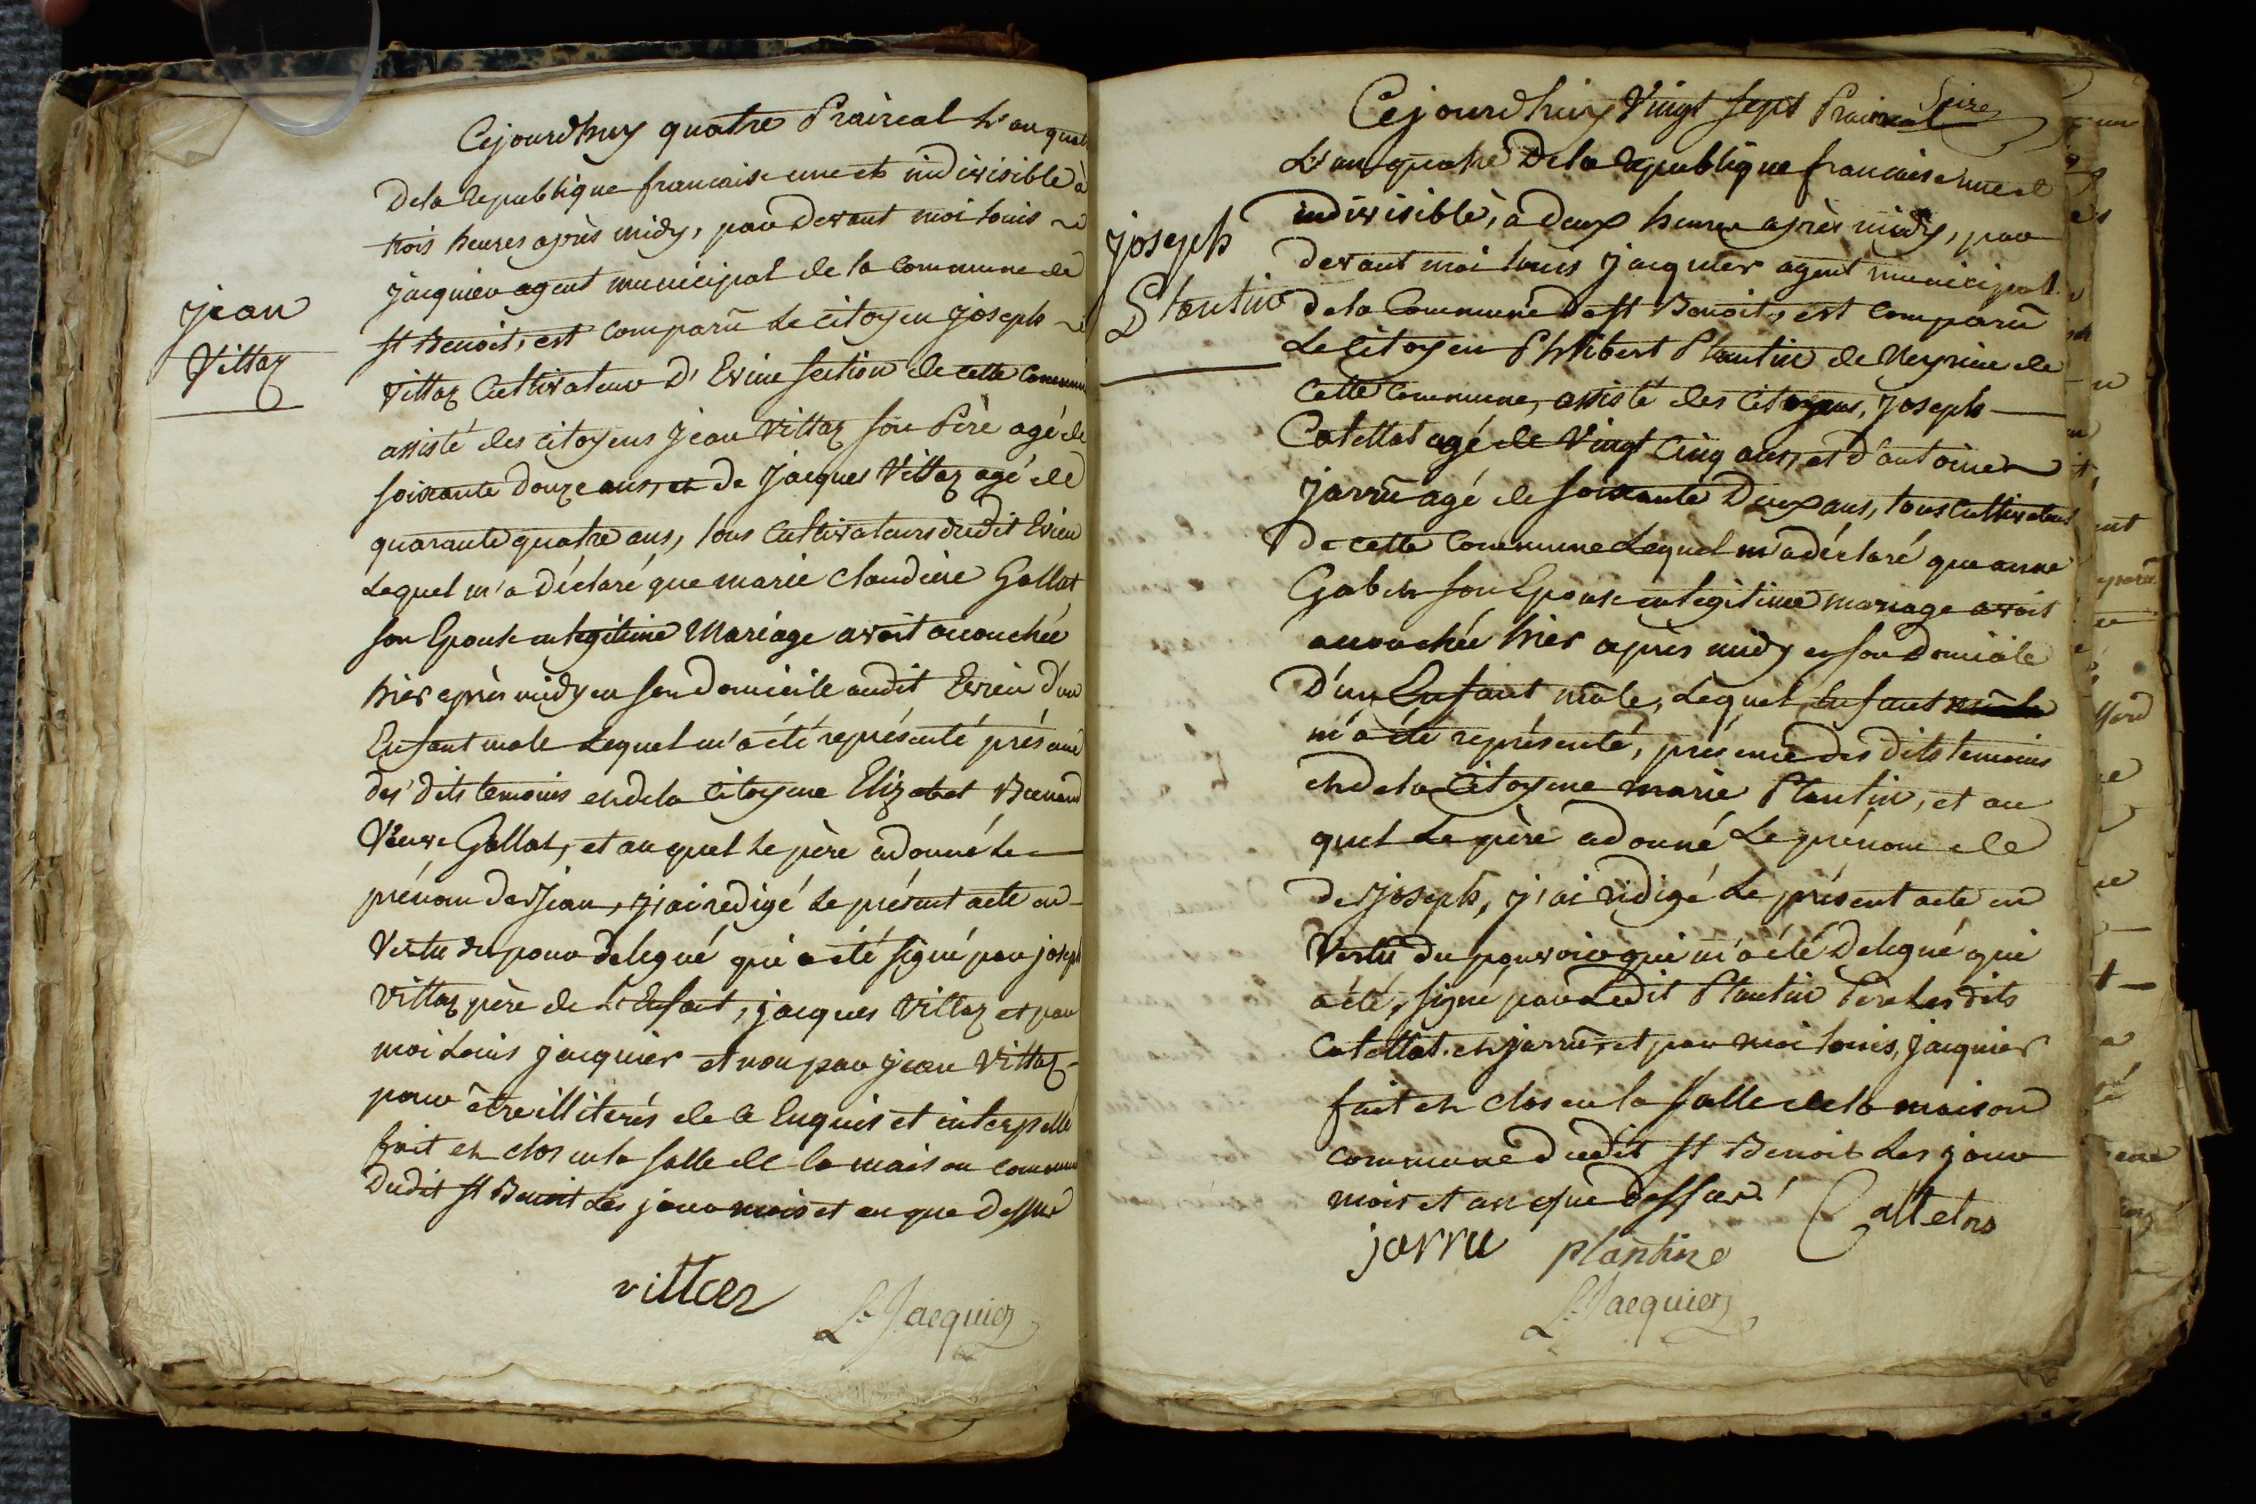 jean
Vittaz
Cejourdhuy quatre Prairéal L'an quat
de la république francaise une et indivisible à
trois heures après midy, par devant moi Louis
jacquier agent municipal de la commune de
st Benoit, est comparû Le citoyen joseph
vittaz Cultivateur D'Evieu section de cette commun
assisté des citoyens jean Vittaz son Père agé de
soixante douze ans, et de jacques Vittaz agé de
quarante quatre ans, tous Cultivateurs dudit Evieu
Lequel m'a déclaré que marie claudine Gallat
son Epouse en legitime Mariage avoit accouchée
hier après midy en son domicile audit Evieu d'un
Enfant male Lequel m'a été représenté présance
des dits temoins et de la Citoyenne Elizabet
Veuve Gallat, et au quel Le père a donné Le
prénom de jean, j'ai redigé Le présent acte en
Vertu du pouv delegué qui a été signé par joseph
Vittaz père de L'Enfant, jacques Vittaz et par
moi Louis jacquier et non par jean Vittaz
pour être illiterés de ce Enquis et interpellé
fait et clos en la salle de la maison commun
dudit st Benoit Les jour mois et an que dessus
vittoz
L. Jacquier
joseph
Plantin
Cejourdhuy Vingt sept Prairéal
L'an quatre De la république francaise une et
indivisible, à deux heures après midy, par
devant moi Louis jacquier agent municipal
de la Commune de st Benoit, est comparû
Le Citoyen Philibert Plantin de Meyrieu de
Cette Commune, assisté des Citoyens, joseph
Catettat agé de Vingt Cinq ans, et d'antoine
jarrû agé de soixante Deux ans, tous Cultivateurs
de cette Commune Lequel m'a déclaré que anne
Gabet son Epouse en legitime mariage avoit
accouchée hier après midy en son domicile
D'un Enfant mâle, Lequel Enfant mâle
m'a été représenté, présence des dits temoins
et de la Citoyenne marie Plantin, et au
quel Le père a donné Le prénom de
de joseph, j'ai redigé Le présent acte en
Vertu du pouvoir qui m'a été Delegué qui
a été, signé par Ledit Plantin Père Les dits
Catettat et jarrû, et par moi Louis, jacquier
fait et clos en la salle de la maison
commune dudit st Benoit Les jour
mois et an que dessus
jarru plantin Cattetno
L. Jacquier